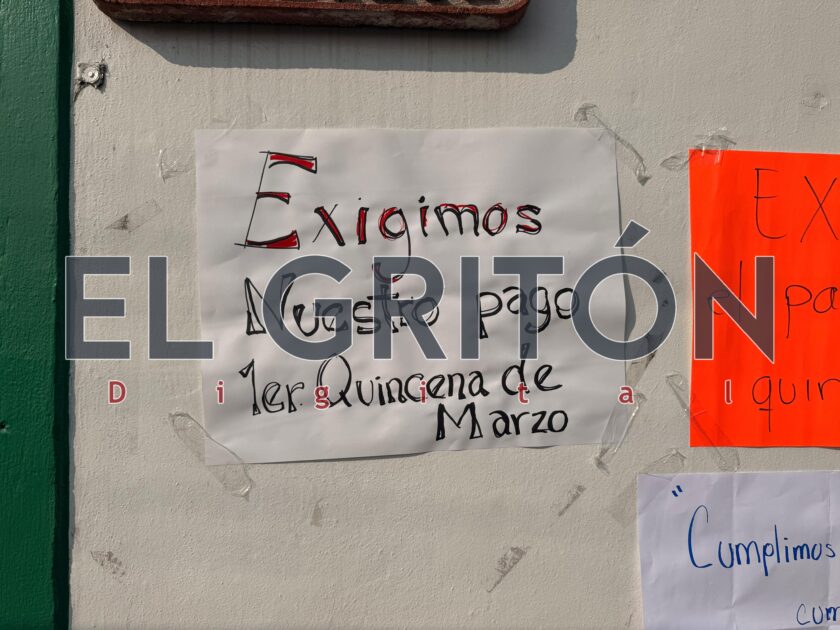 Exigimos
Nuestro pago
1er. Quincena de
Marzo
EL GRITÓN
Digital
EX
el pa
quin
"Cumplimos
cum